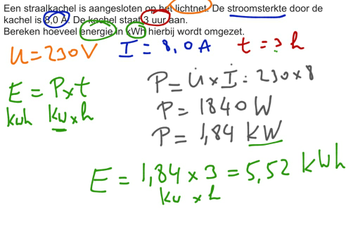 Een straalkachel is aangesloten op het lichtnet. De stroomsterkte door de
kachel is 8,0 A. De kachel staat 3 uur aan.
Bereken hoeveel energie in kWh hierbij wordt omgezet.
U = 230V I = 8,0A t = 3 h
E = P x t
kWh kW x h
P = U x I = 230 x 8
P = 1840 W
P = 1,84 kW
E = 1,84 x 3 = 5,52 kWh
kW x h